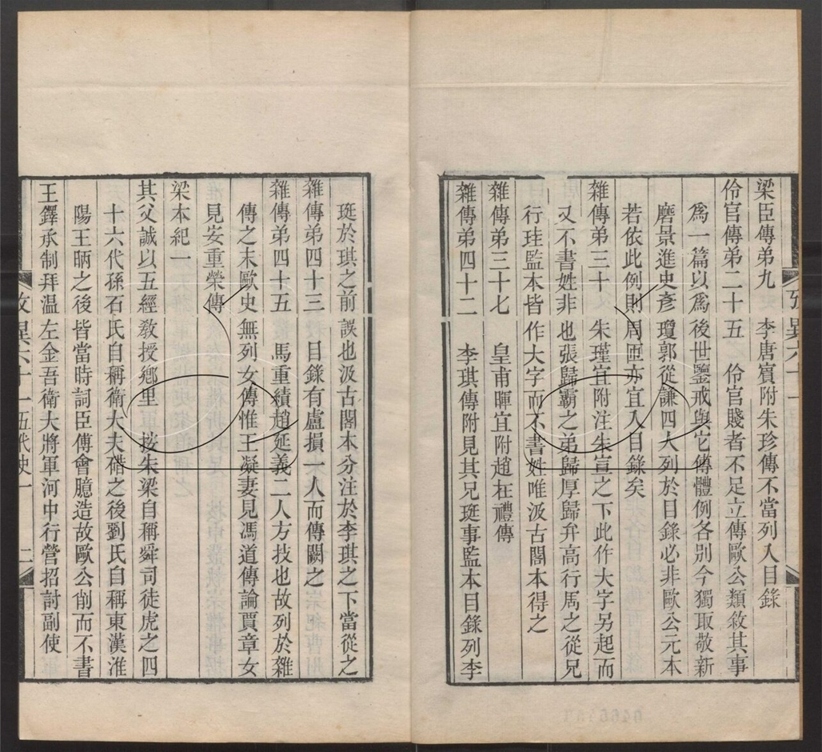 梁臣傳弟九　李唐賓附朱珍傳不當列入目錄
伶官傳弟二十五　伶官賤者不足立傳歐公類敘其事
爲一篇以爲後世鑒戒與它傳體例各別今獨取敬新
磨景進史彥瓊郭從謙四人列於目錄必非歐公元本
若依此例則周匝亦宜入目錄矣
雜傳弟三十　朱瑾宜附注朱宣之下此作大字另起而
又不書姓非也張歸霸之弟歸厚歸弁高行周之從兄
行珪監本皆作大字而不書姓唯汲古閣本得之
雜傳弟三十七　皇甫暉宜附趙在禮傳
雜傳弟四十二　李琪傳附見其兄珽事監本目錄列李
珽於琪之前誤也汲古閣本分注於李琪之下當從之
雜傳弟四十三　目錄有盧損一人而傳闕之
雜傳弟四十五　馬重績趙延義二人方技也故列於雜
傳之末歐史無列女傳惟王凝妻見馮道傳論賈章女
見安重榮傳
梁本紀一
其父誠以五經敎授鄉里　按朱梁自稱舜司徒虎之四
十六代孫石氏自稱衛大夫碏之後劉氏自稱東漢淮
陽王昞之後皆當時詞臣傅會臆造故歐公削而不書
王鐸承制拜温左金吾衛大將軍河中行營招討副使
攷異六十一　五代史一　二